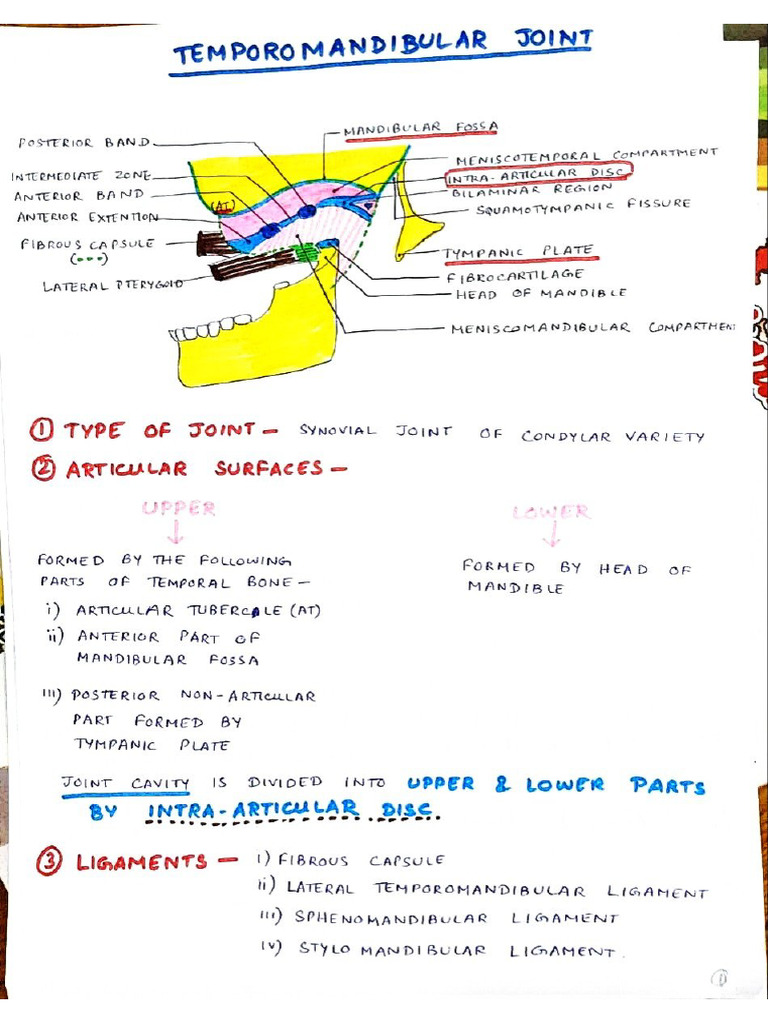 TEMPOROMANDIBULAR JOINT
POSTERIOR BAND
INTERMEDIATE ZONE
ANTERIOR BAND
ANTERIOR EXTENTION
FIBROUS CAPSULE
LATERAL PTERYGOID
(AT)
MANDIBULAR FOSSA
MENISCOTEMPORAL COMPARTMENT
INTRA-ARTICULAR DISC
BILAMINAR REGION
SQUAMOTYMPANIC FISSURE
TYMPANIC PLATE
FIBROCARTILAGE
HEAD OF MANDIBLE
MENISCOMANDIBULAR COMPARTMENT
① TYPE OF JOINT — SYNOVIAL JOINT OF CONDYLAR VARIETY
② ARTICULAR SURFACES —
UPPER
FORMED BY THE FOLLOWING
PARTS OF TEMPORAL BONE —
i) ARTICULAR TUBERCALE (AT)
ii) ANTERIOR PART OF
MANDIBULAR FOSSA
iii) POSTERIOR NON-ARTICULAR
PART FORMED BY
TYMPANIC PLATE
LOWER
FORMED BY HEAD OF
MANDIBLE
JOINT CAVITY IS DIVIDED INTO UPPER & LOWER PARTS
BY INTRA-ARTICULAR DISC.
③ LIGAMENTS — i) FIBROUS CAPSULE
ii) LATERAL TEMPOROMANDIBULAR LIGAMENT
iii) SPHENOMANDIBULAR LIGAMENT
iv) STYLO MANDIBULAR LIGAMENT.
①